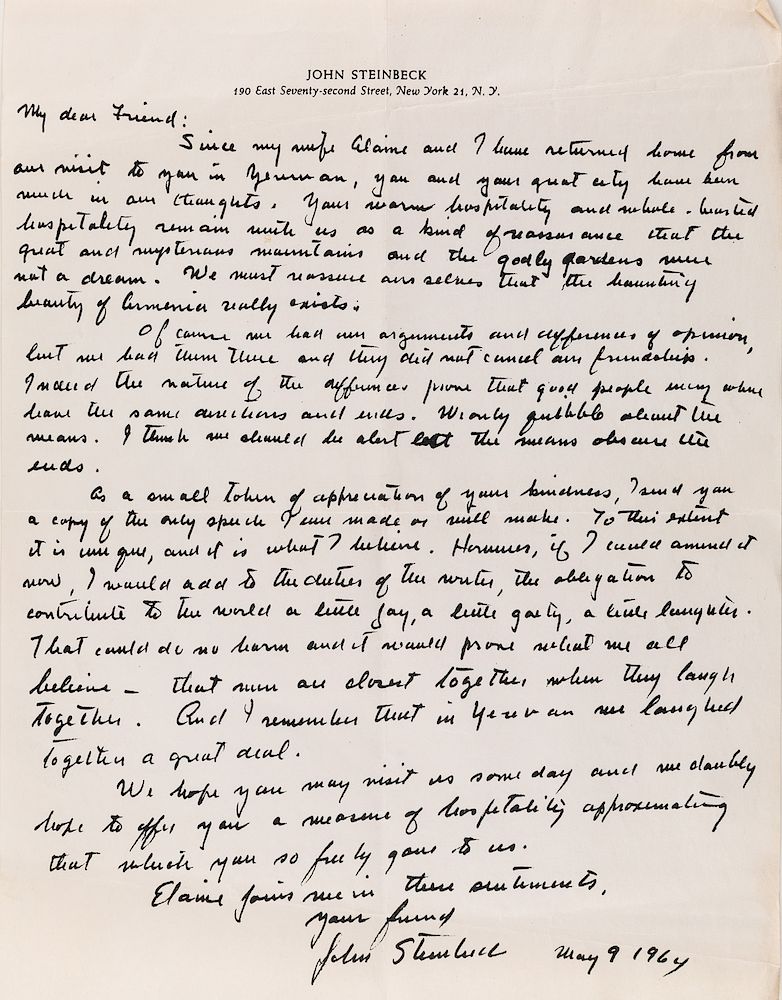 JOHN STEINBECK
190 East Seventy-second Street, New York 21, N. Y.
My dear Friend:
Since my wife Elaine and I have returned home from
our visit to you in Yerevan, you and your great city have been
much in our thoughts. Your warm hospitality and whole-hearted
hospitality remain with us as a kind of reassurance that the
great and mysterious mountains and the godly gardens were
not a dream. We must reassure ourselves that the haunting
beauty of Armenia really exists.
Of course we had our arguments and differences of opinion,
but we had them there and they did not cancel our friendship.
Indeed the nature of the differences prove that good people every where
have the same directions and ends. We only quibble about the
means. I think we should be alert lest the means obscure the
ends.
As a small token of appreciation of your kindness, I send you
a copy of the only speech I ever made or will make. To this extent
it is unique, and it is what I believe. However, if I could amend it
now, I would add to the duties of the writer, the obligation to
contribute to the world a little joy, a little gaiety, a little laughter.
That could do no harm and it would prove what we all
believe – that men are closest together when they laugh
together. And I remember that in Yerevan we laughed
together a great deal.
We hope you may visit us some day and we doubly
hope to offer you a measure of hospitality approximating
that which you so freely gave to us.
Elaine joins me in these sentiments,
your friend
John Steinbeck May 9 1964